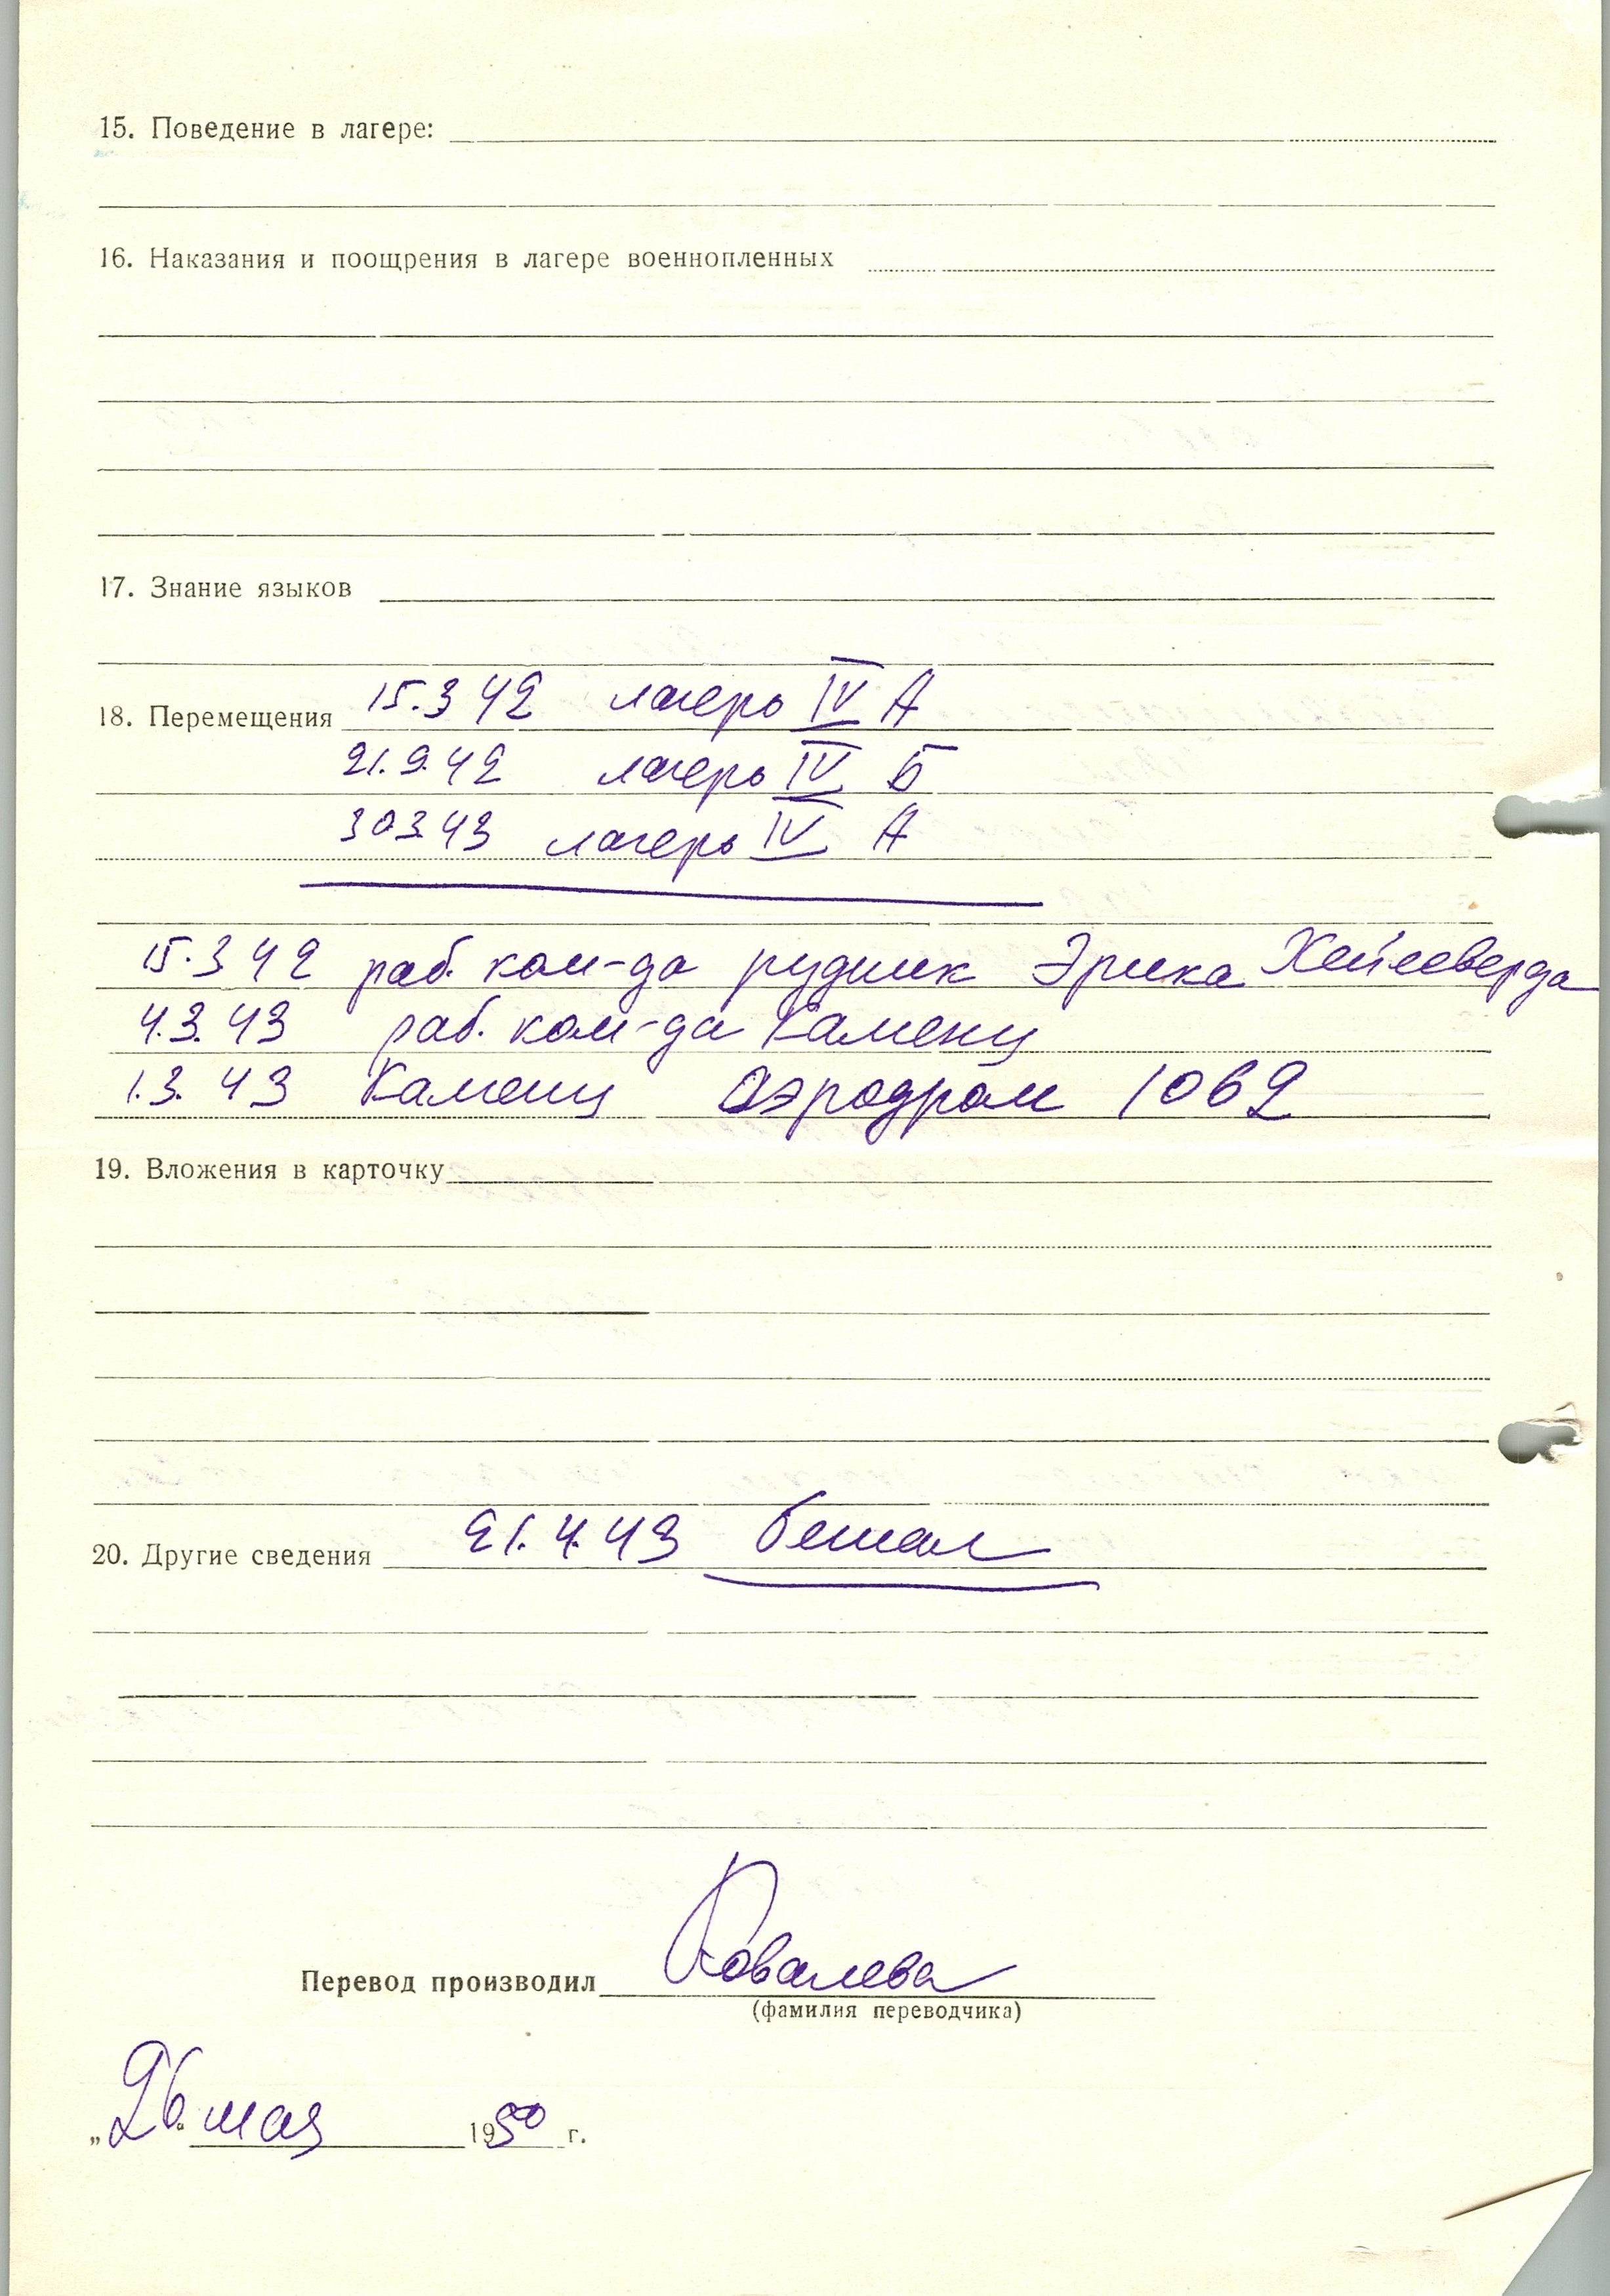 15. Поведение в лагере:
16. Наказания и поощрения в лагере военнопленных
17. Знание языков
18. Перемещения 15.3 42 лагерь IV А
21.9.42 лагерь IV Б
30343 лагерь IV А
15.3 42 раб. ком-да рудник Эрика Хейеверда
4.3.43 раб. ком-да Каменц
1.3.43 Каменц аэродром 1062
19. Вложения в карточку
20. Другие сведения 21.4.43 бежал
Перевод производил Ковалева
(фамилия переводчика)
„26" мая 1950 г.